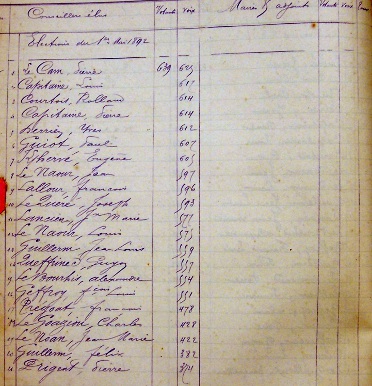 Conseillers élus Votants Voix Maires & adjoints Votants Voix
Elections du 1er Mai 1892
1 Le Cam, Pierre 639 625
2 Capitaine, Louis 617
3 Courtois, Rolland 614
4 Capitaine, Pierre 614
5 Derrien, Yves 612
6 Guiot, Paul 607
7 Kherve, Eugène 605
8 Le Naour, Jean 597
9 Lallour, francois 596
10 Le Quéré, Joseph 593
11 Lancien, Jn Marie 577
12 Le Naour, Louis 575
13 Guillerm, Jean Louis 559
14 Queffinec, Guyon 557
15 Le Bourhis, alexandre 554
16 Geffroy, fcois Louis 551
17 Prigent, francois 478
18 Le Goazion, Charles 428
19 Le Nian, Jean Marie 422
20 Guillerm, felix 382
21 Prigent, Pierre